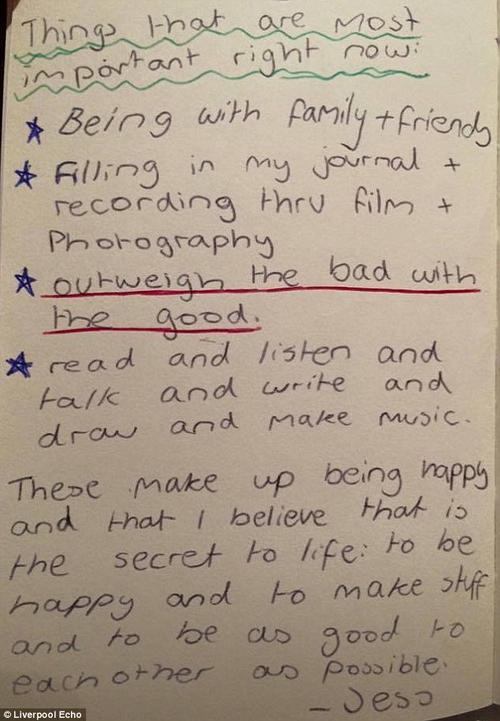 Things that are most
important right now:
Being with family + friends
Filling in my journal +
recording thru film +
Photography
outweigh the bad with
the good.
read and listen and
talk and write and
draw and make music.
These make up being happy
and that I believe that is
the secret to life: to be
happy and to make stuff
and to be as good to
each other as possible.
- Jess
© Liverpool Echo